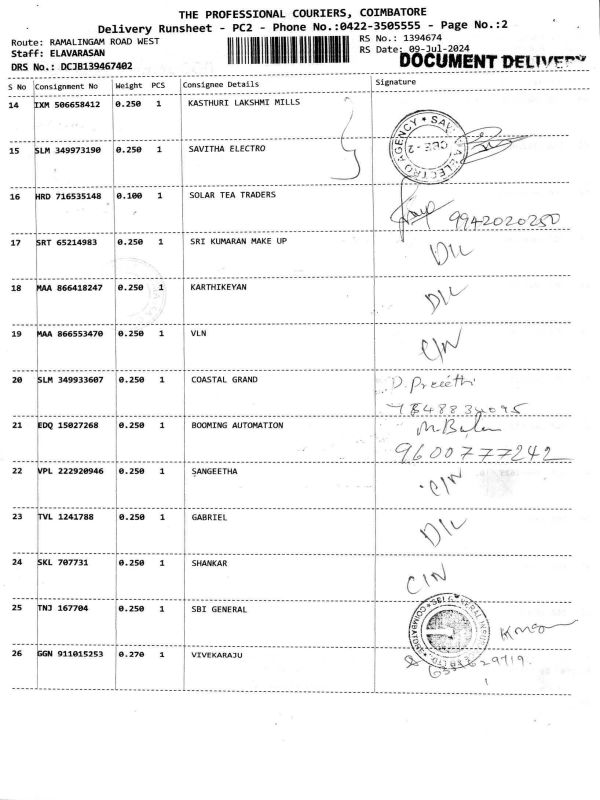 THE PROFESSIONAL COURIERS, COIMBATORE
Delivery Runsheet - PC2 - Phone No.:0422-3505555 - Page No.:2
Route: RAMALINGAM ROAD WEST RS No.: 1394674
Staff: ELAVARASAN RS Date: 09-Jul-2024
DRS No.: DCJB139467402 DOCUMENT DELIVERY
S No Consignment No Weight PCS Consignee Details Signature
14 IXM 506658412 0.250 1 KASTHURI LAKSHMI MILLS
15 SLM 349973190 0.250 1 SAVITHA ELECTRO
16 HRD 716535148 0.100 1 SOLAR TEA TRADERS 9942020250
17 SRT 65214983 0.250 1 SRI KUMARAN MAKE UP D/L
18 MAA 866418247 0.250 1 KARTHIKEYAN D/L
19 MAA 866553470 0.250 1 VLN C/N
20 SLM 349933607 0.250 1 COASTAL GRAND D. Preethi
21 EDQ 15027268 0.250 1 BOOMING AUTOMATION
9600777242
22 VPL 222920946 0.250 1 SANGEETHA C/N
23 TVL 1241788 0.250 1 GABRIEL D/L
24 SKL 707731 0.250 1 SHANKAR C/N
25 TNJ 167704 0.250 1 SBI GENERAL
26 GGN 911015253 0.270 1 VIVEKARAJU